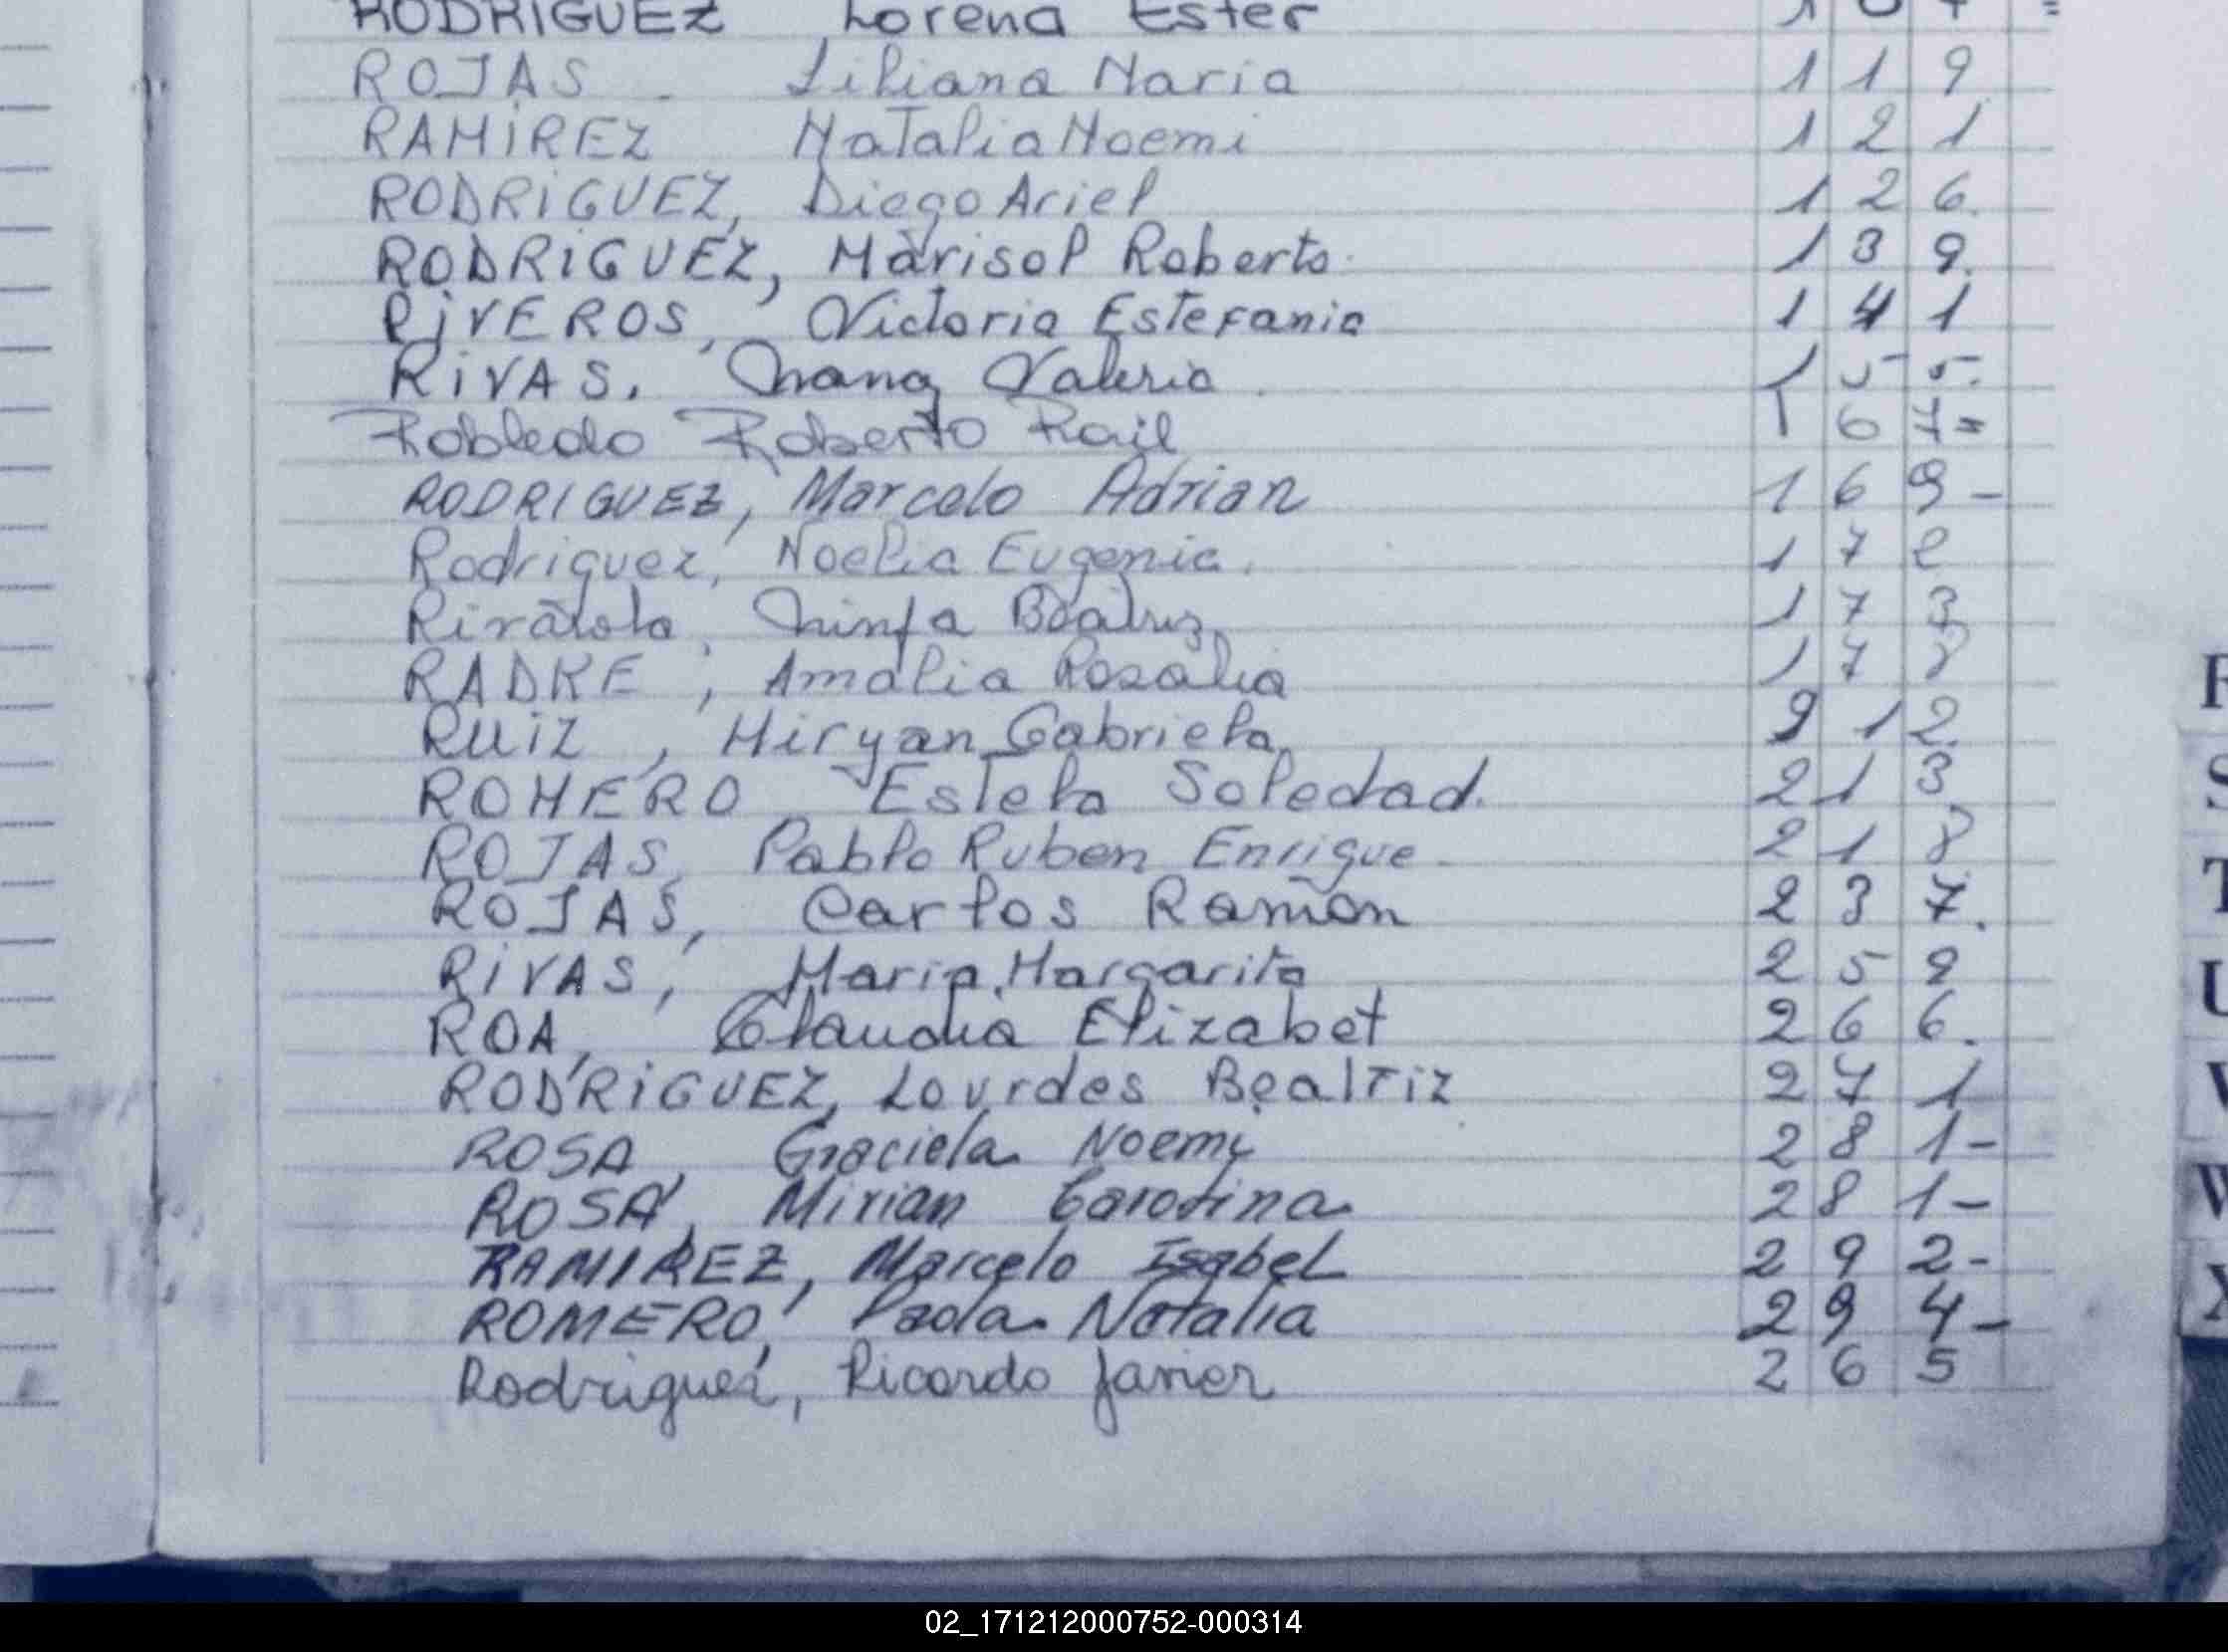 RODRIGUEZ Lorena Ester 1 0 7 =
ROJAS Liliana Maria 1 1 9
RAMIREZ Natalia Noemi 1 2 1
RODRIGUEZ, Diego Ariel 1 2 6.
RODRIGUEZ, Marisol Roberto 1 3 9.
RIVEROS, Victoria Estefania 1 4 1
RIVAS, Valeria 1 5 5.
Robledo Roberto Rail 1 6 7 =
RODRIGUEZ, Marcelo Adrian 1 6 9 -
Rodriguez, Noelia Eugenia. 1 7 2
Ninfa Beatriz 1 7 3
RADKE, Amalia Rosalia 1 7 8
RUIZ, Miryan Gabriela 2 1 2
ROMERO Estela Soledad. 2 1 3
ROJAS, Pablo Ruben Enrique 2 1 8
ROJAS, Carlos Ramon 2 3 7.
RIVAS, Maria Margarita 2 5 9
ROA, Claudia Elizabet 2 6 6.
RODRIGUEZ, Lourdes Beatriz 2 7 1
ROSA, Graciela Noemi 2 8 1 -
ROSA, Mirian Carolina 2 8 1 -
RAMIREZ, Marcelo Isabel 2 9 2 -
ROMERO, Paola Natalia 2 9 4 -
Rodriguez, Ricardo Javier 2 6 5
R
S
T
U
V
W
X
02_171212000752-000314